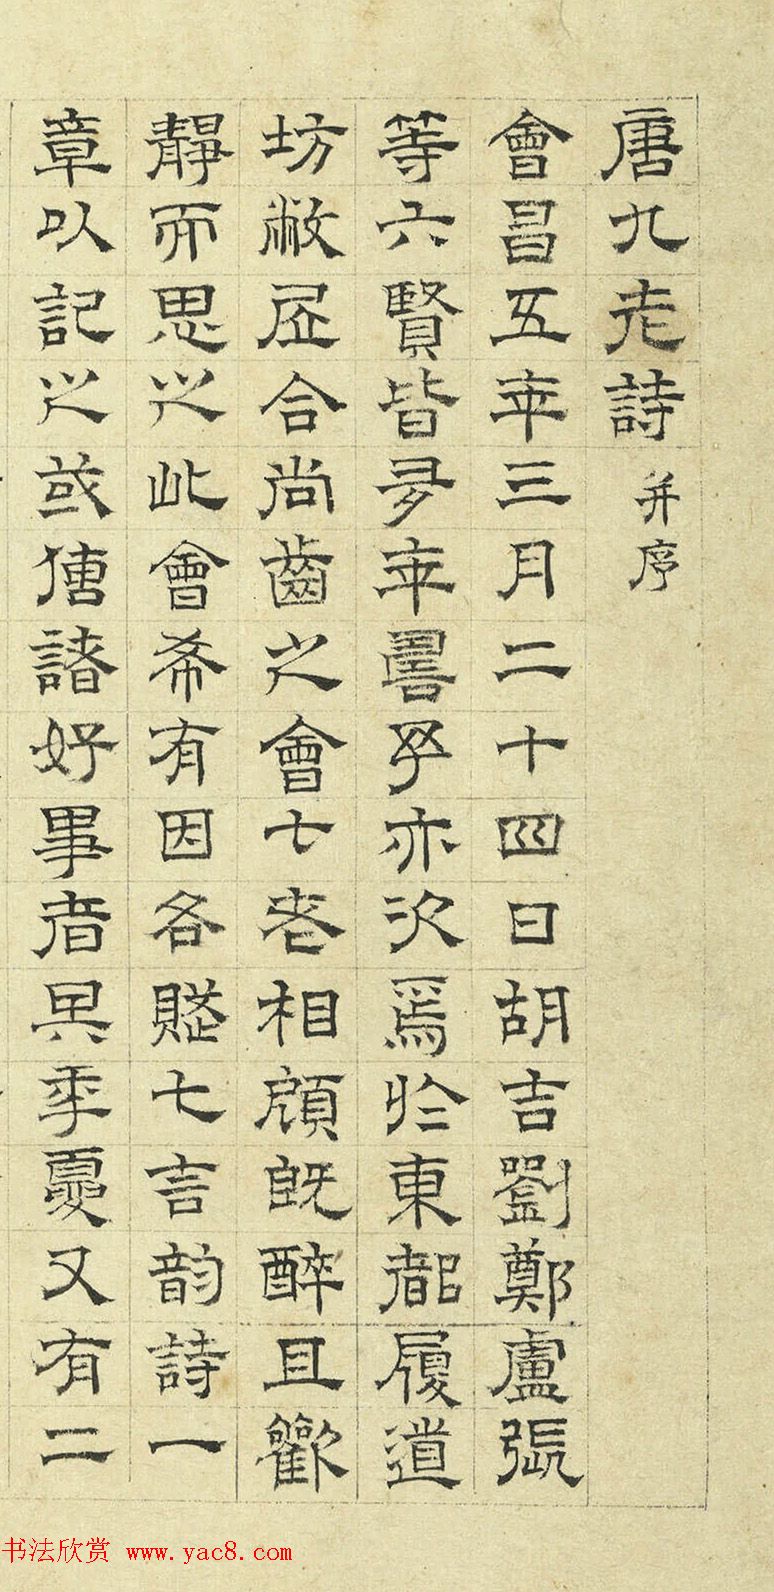 唐九老詩并序
會昌五年三月二十四日胡吉劉鄭盧張
等六賢皆多年壽予亦次焉於東都履道
坊敝居合尚齒之會七老相顧既醉且歡
靜而思之此會希有因各賦七言韵詩一
章以記之或傳諸好事者其季夏又有二
书法欣赏 www.yac8.com